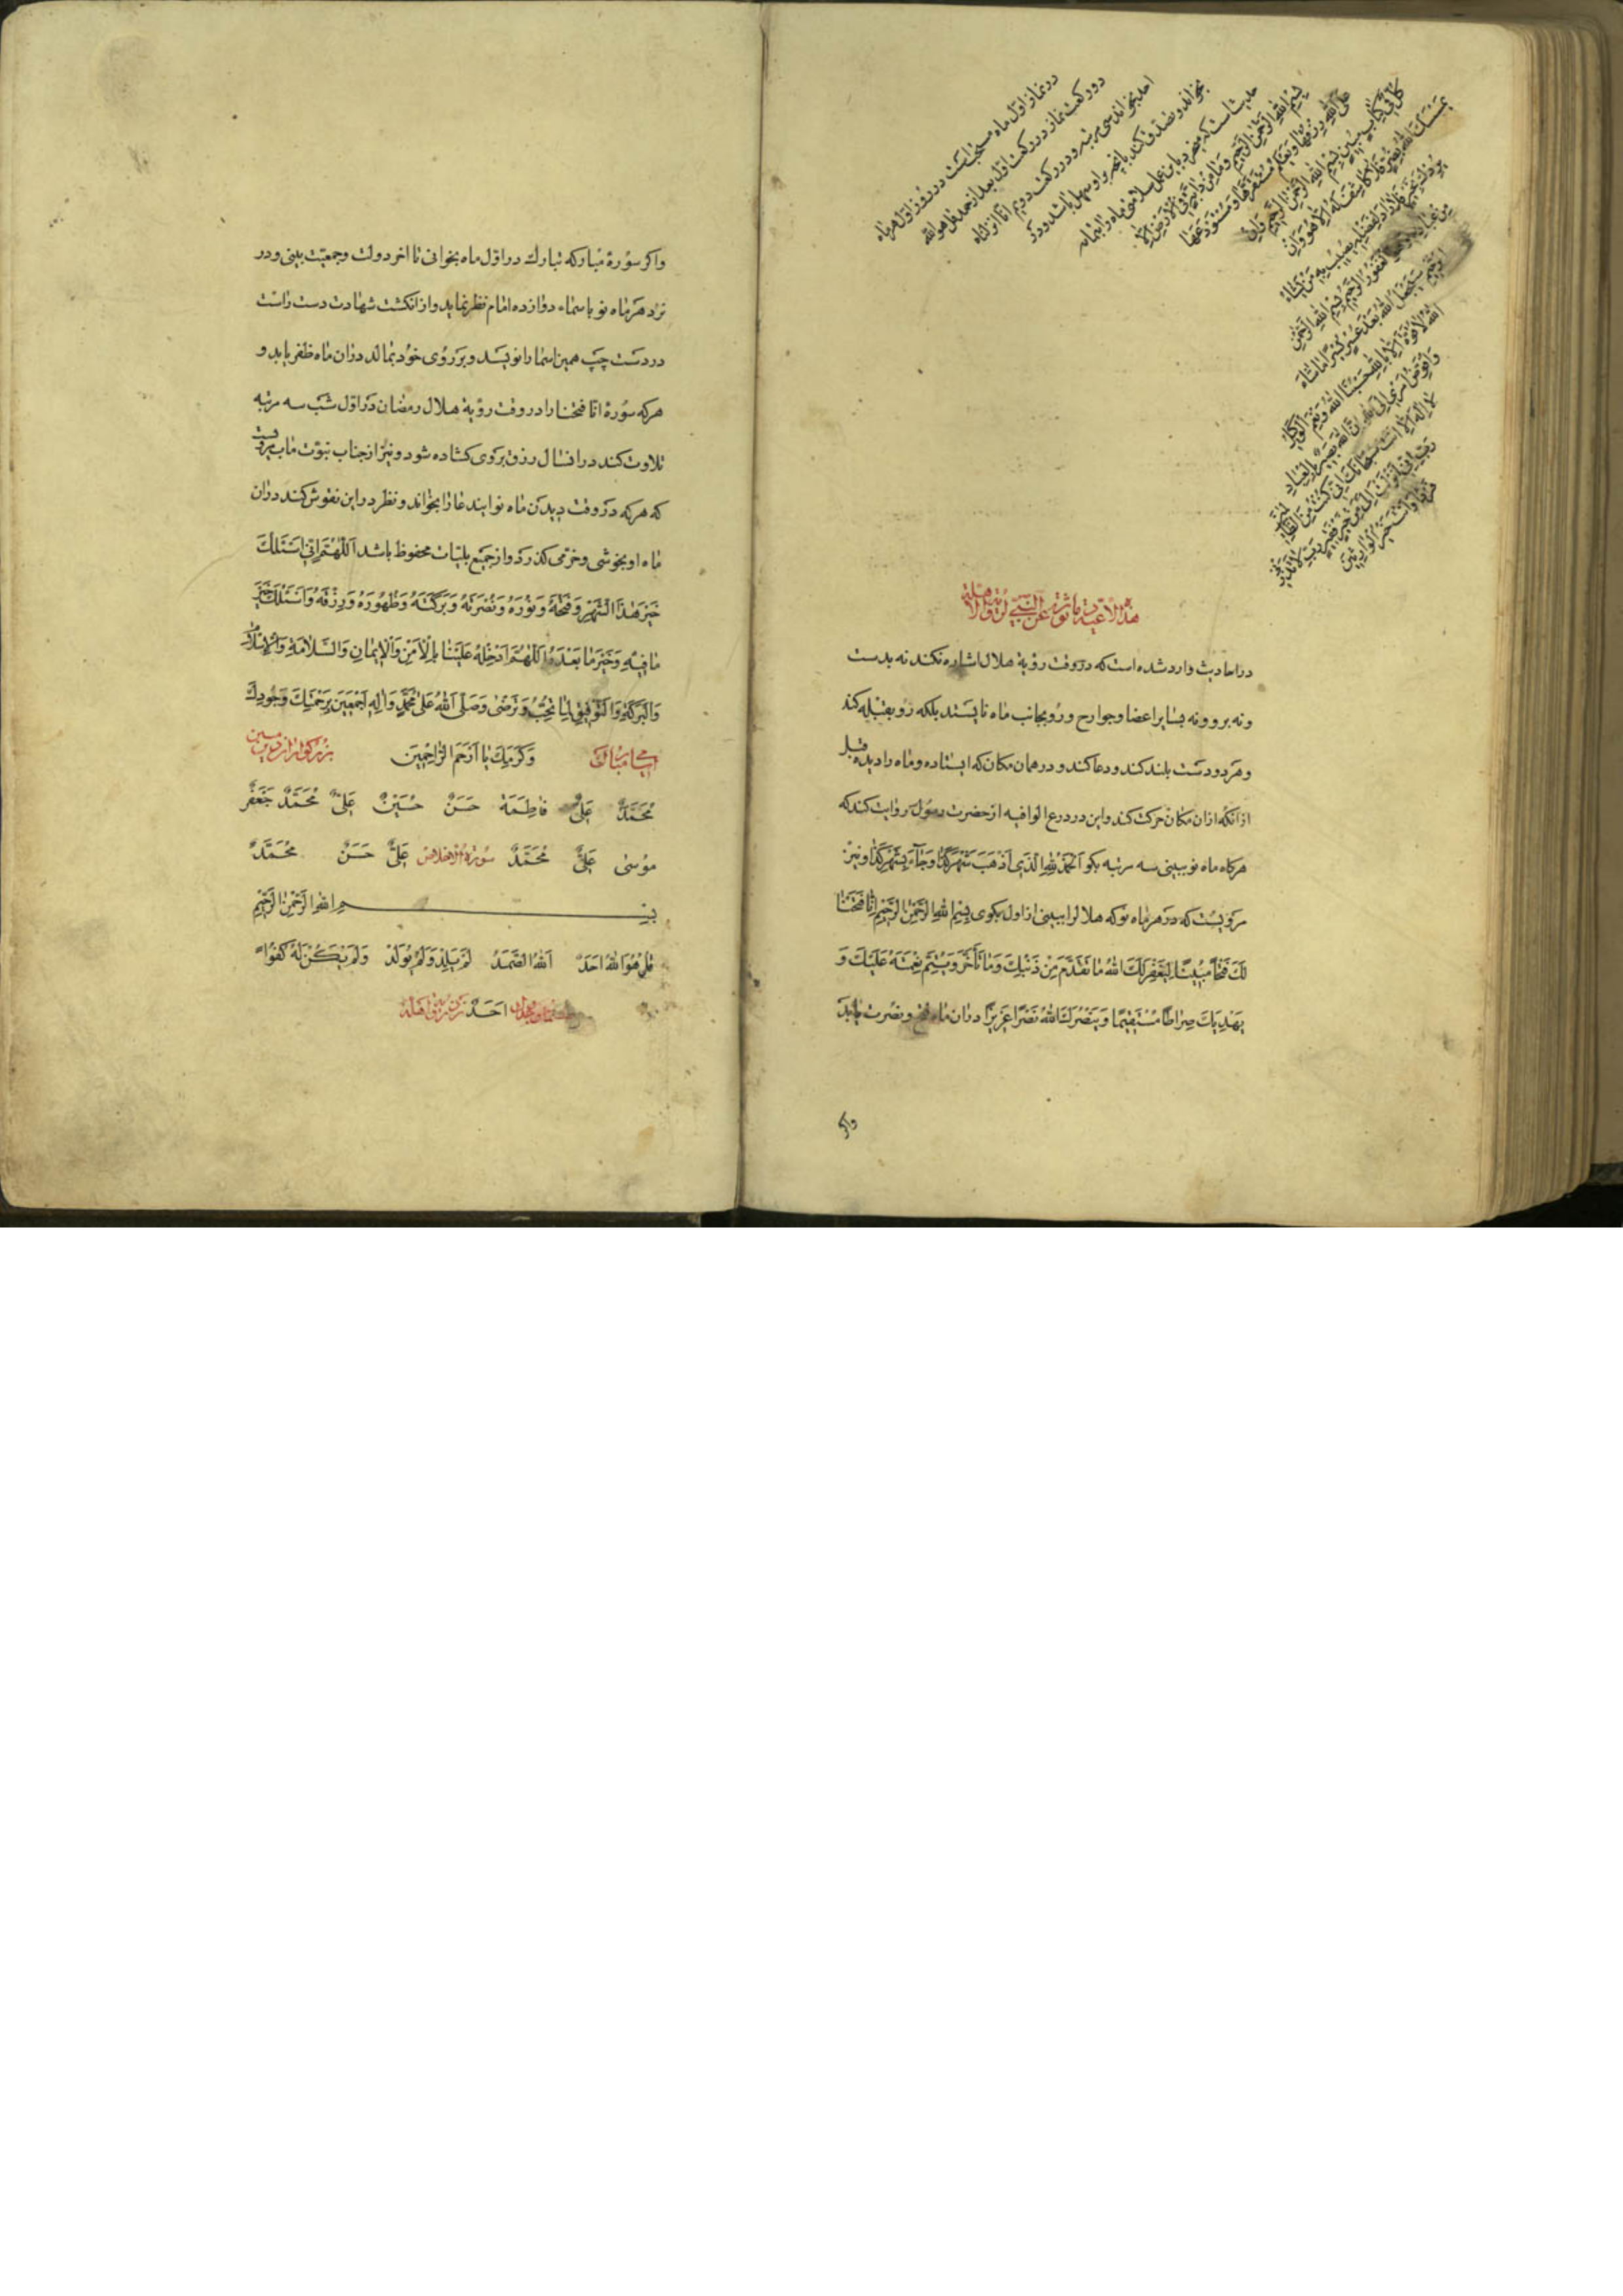 در نماز اول ماه مستحب است در روز اول هر ماه
دو رکعت نماز در رکعت اول بعد از حمد قل هو الله
احد بخواند سی مرتبه و در رکعت دویم انا انزلناه
بخواند و تصدق کند بانچه بر او سهل باشد و در
حدیث است که
بسم الله الرحمن الرحیم وما من دابة فی الارض الا
علی الله رزقها ویعلم مستقرها ومستودعها
کل فی کتاب مبین بسم الله الرحمن الرحیم وان
یمسسک الله بضر فلا کاشف له الا هو وان
یردک بخیر فلا راد لفضله یصیب به من یشاء
من عباده وهو الغفور الرحیم بسم الله الرحمن
الرحیم سیجعل الله بعد عسر یسرا ما شاء
الله لا قوة الا بالله حسبنا الله ونعم الوکیل
وافوض امری الی الله ان الله بصیر بالعباد
لا اله الا انت سبحانک انی کنت من الظالمین
رب انی لما انزلت الی من خیر فقیر رب لا تذرنی
فردا وانت خیر الوارثین
هذه الادعیة ماثورة عن النبی لرؤیة الاهلة
در احادیث وارد شده است که در وقت رؤیة هلال اشاره نکند نه بدست
و نه برو و نه بسایر اعضا و جوارح و رو بجانب ماه نایستد بلکه رو بقبله کند
و هر دو دست بلند کند و دعا کند و در همان مکان که ایستاده و ماه را دیده قبل
از انکه ازان مکان حرکت کند و این در درع الواقیه از حضرت رسول روایت کند که
هرکاه ماه نو ببینی سه مرتبه بکو اَلحَمدُ لِلّهِ الَّذی اَذهَبَ شَهرَ کَذا وَجاءَ بِشَهرِ کَذا و نیز
مرویست که در هر ماه نو که هلال را ببینی از اول بکوی بِسمِ اللهِ الرَّحمنِ الرَّحیمِ اِنّا فَتَحنا
لَکَ فَتحاً مُبیناً لِیَغفِرَ لَکَ اللهُ ما تَقَدَّمَ مِن ذَنبِکَ وَما تَأَخَّرَ وَیُتِمَّ نِعمَتَهُ عَلَیکَ وَ
یَهدِیَکَ صِراطاً مُستَقیماً وَیَنصُرَکَ اللهُ نَصراً عَزیزاً دران ماه فتح و نصرت یابد
واکر
واکر سورهٔ مبارکه تبارک در اول ماه بخوانی تا اخر دولت و جمعیت بینی و در
نزد هر ماه نو باسماء دوازده امام نظر نماید و از انکشت شهادت دست راست
در دست چپ همین اسما را نویسد و بر روی خود بمالد دران ماه ظفر یابد و
هرکه سورهٔ انا فتحنا را در وقت رؤیة هلال رمضان در اول شب سه مرتبه
تلاوت کند در انسال رزق بر وی کشاده شود و نیز از جناب نبوت ماب مرویست
که هرکه در وقت دیدن ماه نو ایندعا را بخواند و نظر در این نقوش کند دران
ماه او بخوشی و خرمی کذرد و از جمیع بلیات محفوظ باشد اَللّهُمَّ اِنّی اَسئَلُکَ
خَیرَ هذَا الشَّهرِ وَفَتحَهُ وَنُورَهُ وَنُصرَتَهُ وَبَرَکَتَهُ وَطُهُورَهُ وَرِزقَهُ وَاَسئَلُکَ خَیرَ
ما فیهِ وَخَیرَ ما بَعدَهُ اَللّهُمَّ اَدخِلهُ عَلَینا بِالاَمنِ وَالایمانِ وَالسَّلامَةِ وَالاِسلامِ
وَالبَرَکَةِ وَالتَّوفیقِ لِما تُحِبُّ وَتَرضی وَصَلَّی اللهُ عَلی مُحَمَّدٍ وَالِهِ اَجمَعینَ بِرَحمَتِکَ وَجُودِکَ
اسامی مبارک وَکَرَمِکَ یا اَرحَمَ الرّاحِمینَ بزرکواران دین مبین
مُحَمَّدٌ عَلیٌّ فاطِمَة حَسَنٌ حُسَینٌ عَلیٌّ مُحَمَّدٌ جَعفَرٌ
مُوسی عَلیٌّ مُحَمَّدٌ سورة الاخلاص عَلیٌّ حَسَنٌ مُحَمَّدٌ
بِسمِ اللهِ الرَّحمنِ الرَّحیمِ
قُل هُوَ اللهُ اَحَدٌ اَللهُ الصَّمَدُ لَم یَلِد وَلَم یُولَد وَلَم یَکُن لَهُ کُفُواً
اَحَدٌ